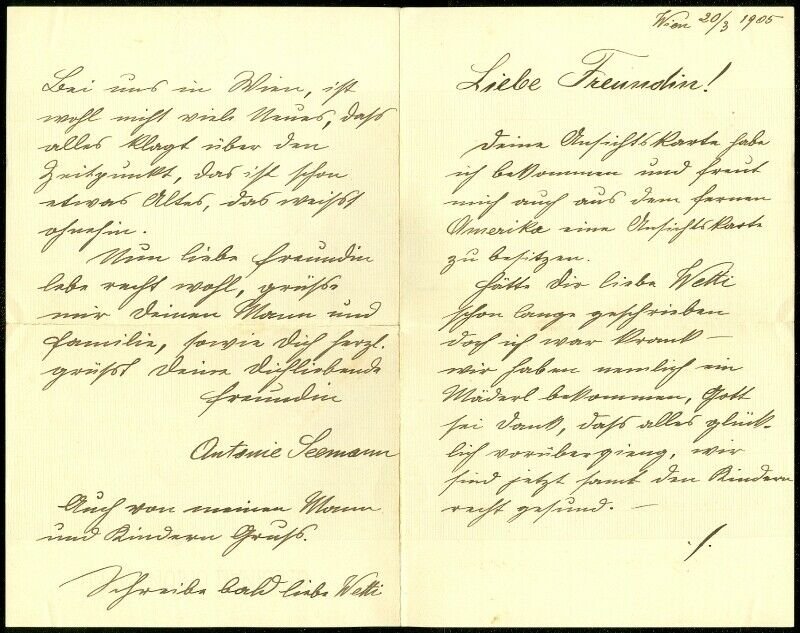 Wien 20/3 1905
Liebe Freundin!
Deine Ansichtskarte habe
ich bekommen und freut
mich auch aus dem fernen
Amerika eine Ansichtskarte
zu besitzen.
Hätte dir liebe Wetti
schon lange geschrieben
doch ich war krank –
wir haben nemlich ein
Mäderl bekommen, Gott
sei Dank, dass alles glück-
lich vorübergieng, wir
sind jetzt samt den Kindern
recht gesund. –
./.
Bei uns in Wien, ist
wohl nicht viel Neues, dass
alles klagt über den
Zeitpunkt, das ist schon
etwas Altes, das weisst
ohnehin.
Nun liebe Freundin
lebe recht wohl, grüsse
mir Deinen Mann und
Familie, sowie Dich herzl.
grüsst Deine Dichliebende
Freundin
Antonie Seemann
Auch von meinen Mann
und Kindern Gruss.
Schreibe bald liebe Wetti